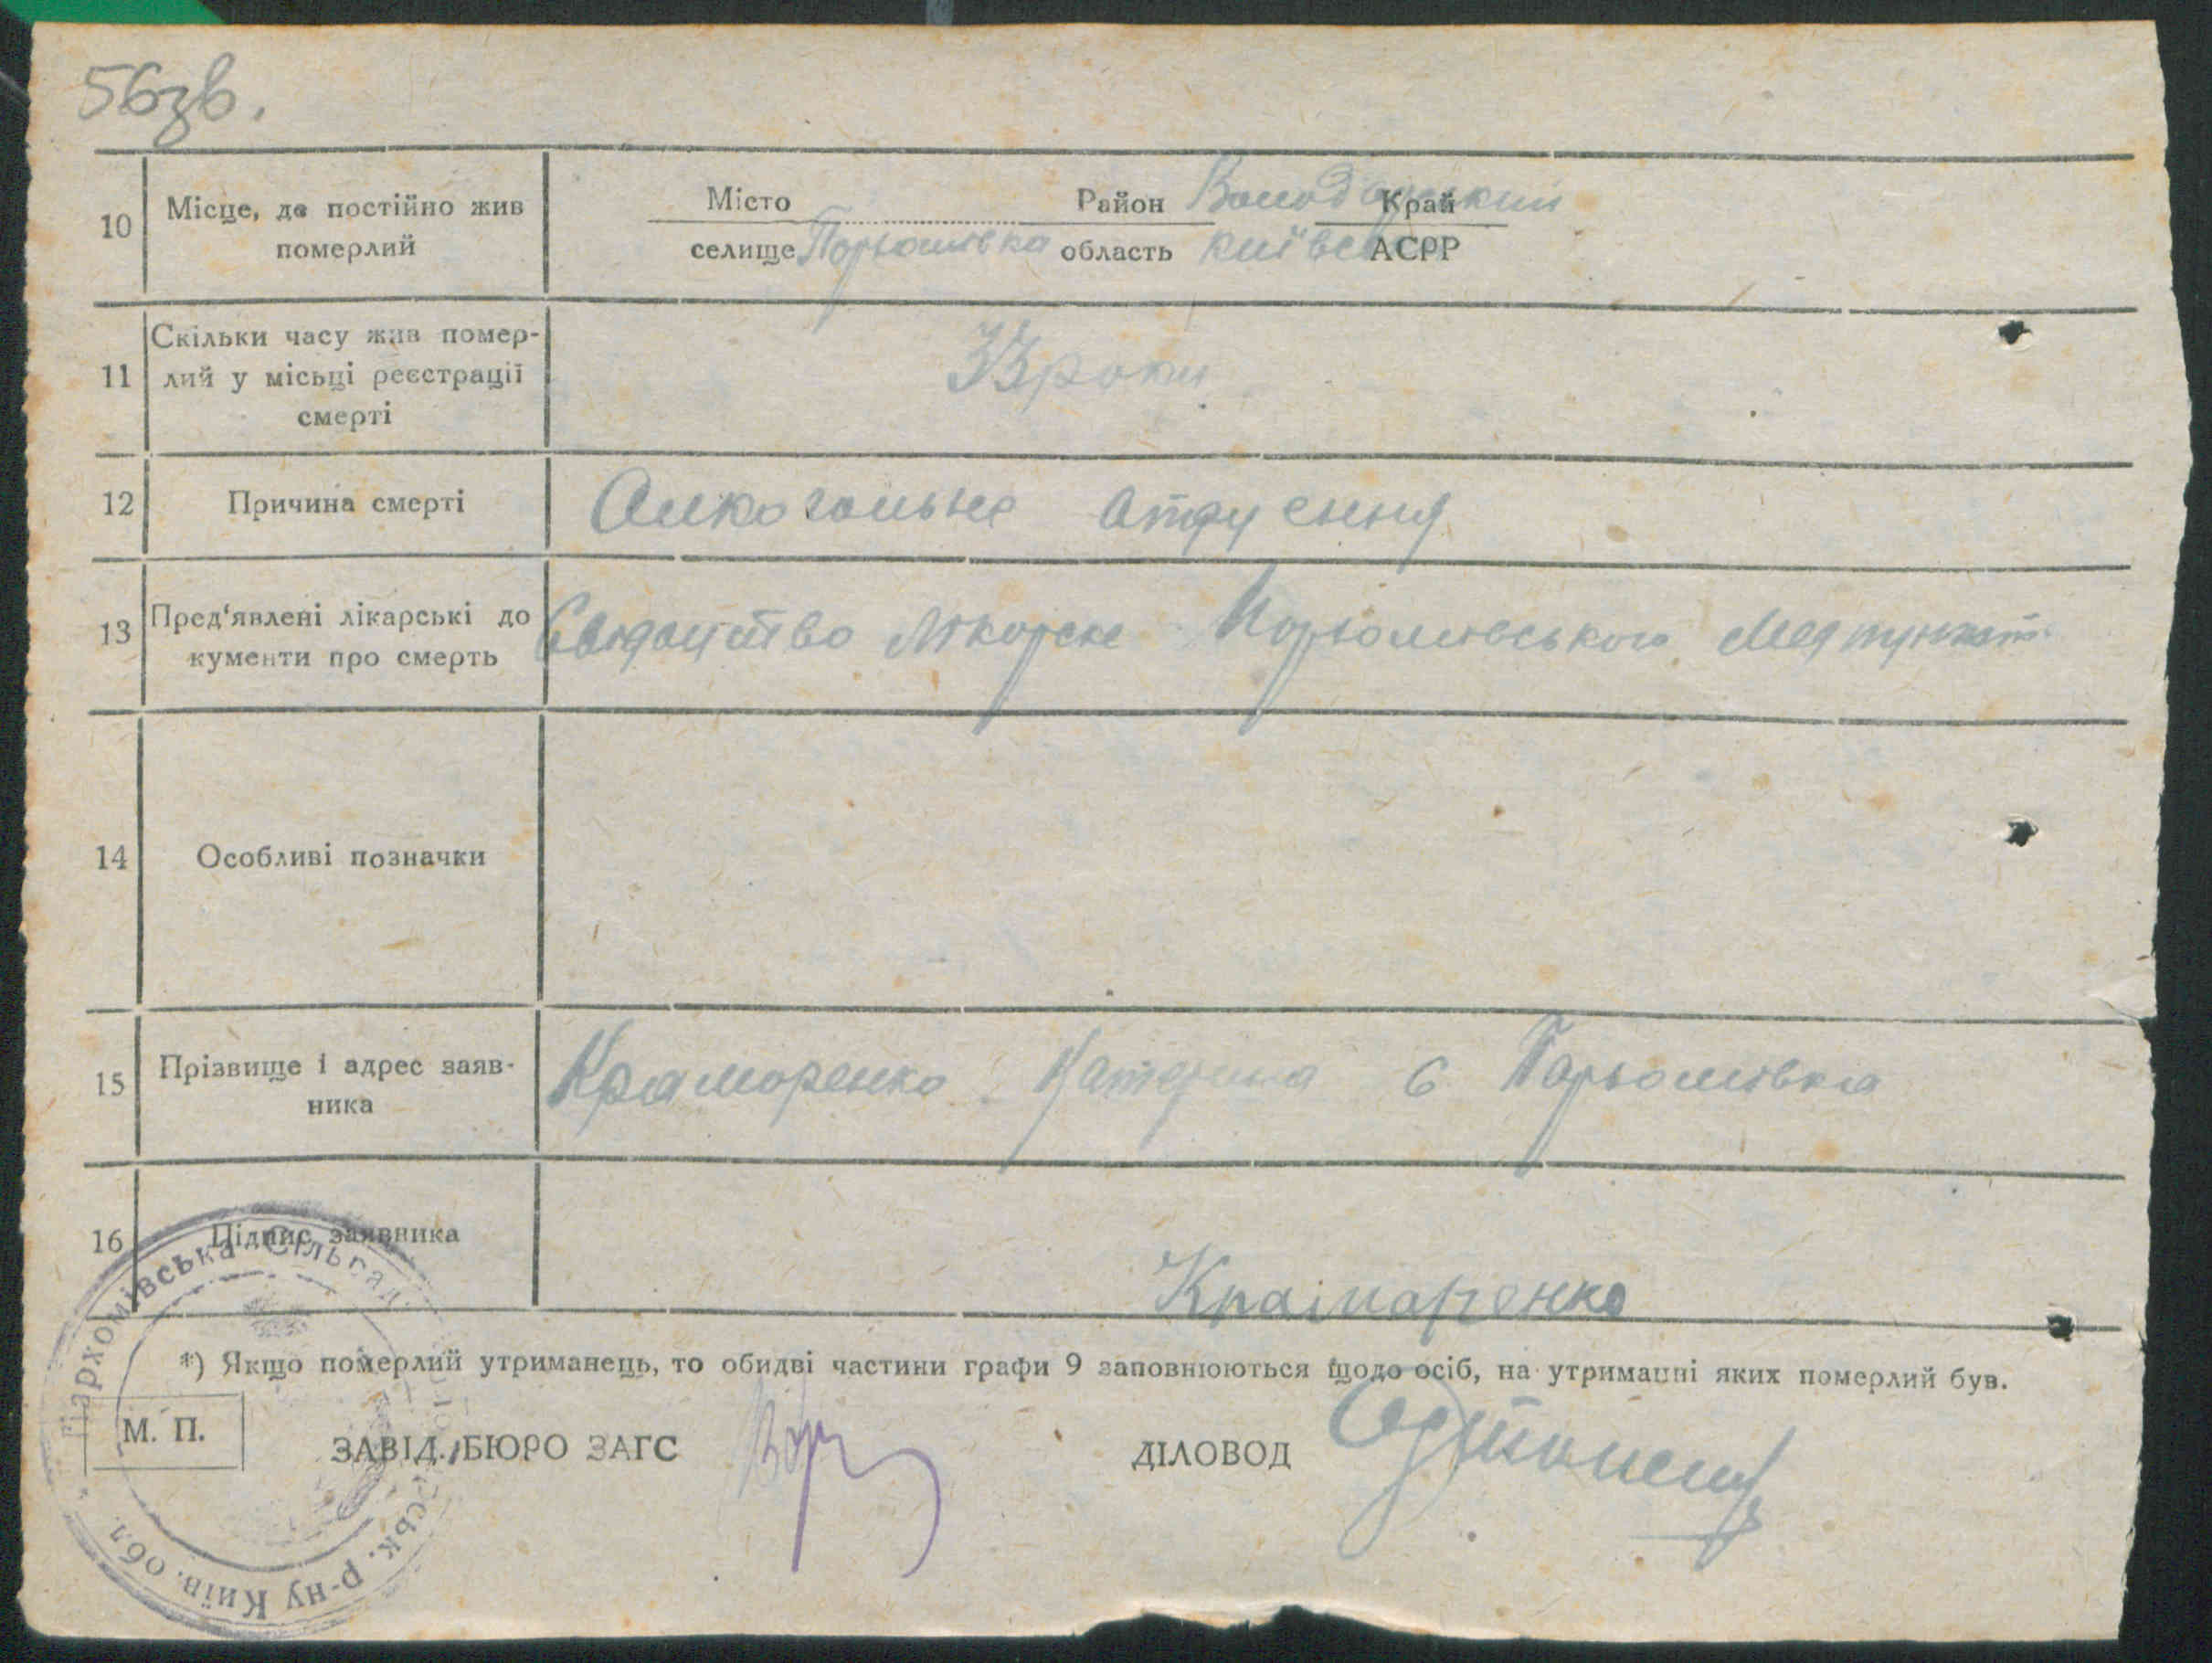 56зв.
10 Місце, де постійно жив померлий
Місто Район Володарський Край
селище Порхомівка область київськ АСРР
11 Скільки часу жив помер-
лий у місьці реєстрації
смерті
33 роки
12 Причина смерті Алкогольне отруення
13 Пред'явлені лікарські до
кументи про смерть
Свидоцтво лікорске Порхомовського Медпункт
14 Особливі позначки
15 Прізвище і адрес заяв-
ника
Краморенко Катерина с Пархомовка
16 Підпис заявника
Крамаренко
*) Якщо померлий утриманець, то обидві частини графи 9 заповнюються щодо осіб, на утриманні яких померлий був.
М. П.
ЗАВІД. БЮРО ЗАГС ДІЛОВОД
Пархомівська Сільрад. р-ну Київ. обл.